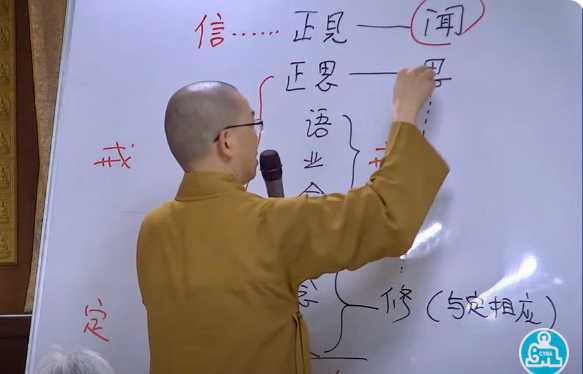 信……正見——闻
正思——思
语
戒 业
念 修（与定相应）
定